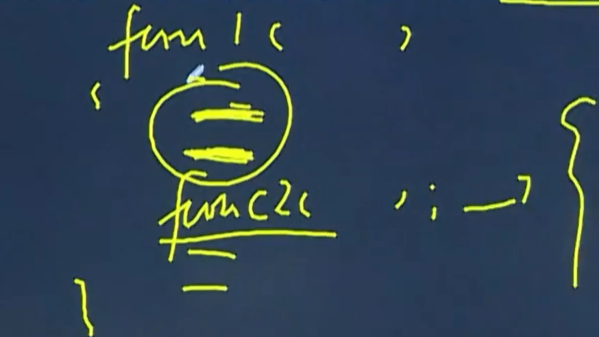 func1( )
{
func2( ); → {
}